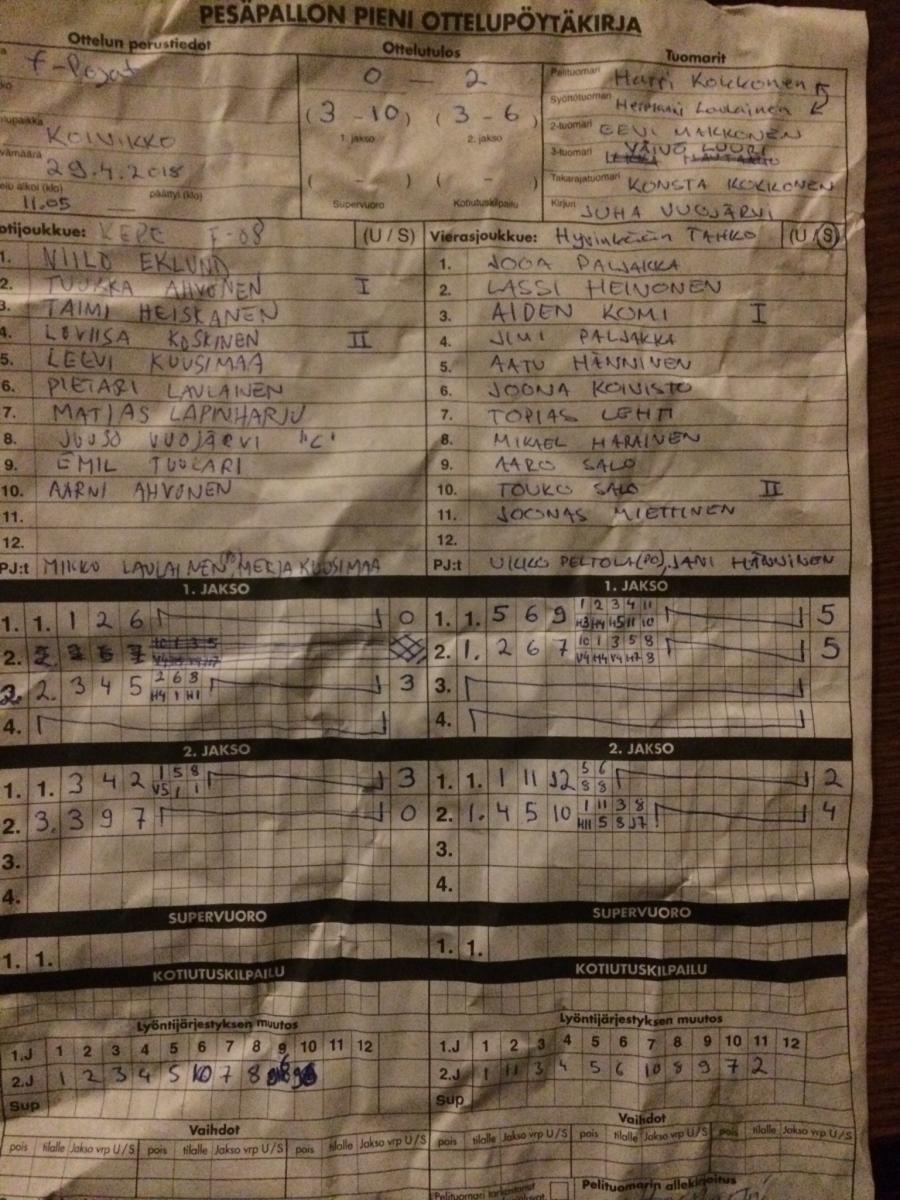 PESÄPALLON PIENI OTTELUPÖYTÄKIRJA
Ottelun perustiedot
F-Pojat
KOIVIKKO
29.4.2018
11.05
päättyi (klo)
Ottelutulos
0 – 2
(3 - 10) (3 - 6)
1. jakso 2. jakso
( - ) ( - )
Supervuoro Kotiutuskilpailu
Tuomarit
Pelituomari Harri Kokkonen
Syöttötuomari Hermanni Laulainen
2-tuomari EEVI MAKKONEN
3-tuomari VÄINÖ LUURI
Takarajatuomari KONSTA KOKKONEN
Kirjuri JUHA VUOJÄRVI
otijoukkue: KEPE F-08 (U / S)
1. NIILO EKLUND
2. TUUKKA AHVONEN I
3. TAIMI HEISKANEN
4. LOVIISA KOSKINEN II
5. LEEVI KUUSIMAA
6. PIETARI LAULAINEN
7. MATIAS LAPINHARJU
8. JUUSO VUOJÄRVI "C"
9. EMIL TUULARI
10. AARNI AHVONEN
11.
12.
PJ:t MIKKO LAULAINEN MERJA KUUSIMAA
Vierasjoukkue: Hyvinkään TAHKO (U / S)
1. JOOA PALJAKKA
2. LASSI HEINONEN
3. AIDEN KOMI I
4. JIMI PALJAKKA
5. AATU HÄNNINEN
6. JOONA KOIVISTO
7. TOPIAS LEHTI
8. MIKAEL HARAINEN
9. AARO SALO
10. TOUKO SALO II
11. JOONAS MIETTINEN
12.
PJ:t UKKO PELTOLA (PO), JANI HÄNNINEN
1. JAKSO
1. 1. 1 2 6 0
2.
3. 2. 3 4 5 2 6 8 3
H4 1 H1
4.
1. JAKSO
1. 1. 5 6 9 1 2 3 4 11 5
H3 H4 H5 11 10
2. 1. 2 6 7 10 1 3 5 8 5
V4 H4 V4 H7 8
3.
4.
2. JAKSO
1. 1. 3 4 2 1 5 8 3
V5 1 1
2. 3. 3 9 7 0
3.
4.
2. JAKSO
1. 1. 1 11 12 5 6 2
8 8
2. 1. 4 5 10 1 11 3 8 4
H11 5 8 J7
3.
4.
SUPERVUORO
1. 1.
SUPERVUORO
1. 1.
KOTIUTUSKILPAILU
KOTIUTUSKILPAILU
Lyöntijärjestyksen muutos
1.J 1 2 3 4 5 6 7 8 9 10 11 12
2.J 1 2 3 4 5 10 7 8
Sup
Lyöntijärjestyksen muutos
1.J 1 2 3 4 5 6 7 8 9 10 11 12
2.J 1 11 3 4 5 6 10 8 9 7 2
Sup
Vaihdot
pois tilalle Jakso vrp U/S pois tilalle Jakso vrp U/S pois tilalle Jakso vrp U/S
Vaihdot
pois tilalle Jakso vrp U/S pois tilalle Jakso vrp U/S pois tilalle Jakso vrp U/S
Pelituomari tarkastanut
Pelituomarin allekirjoitus